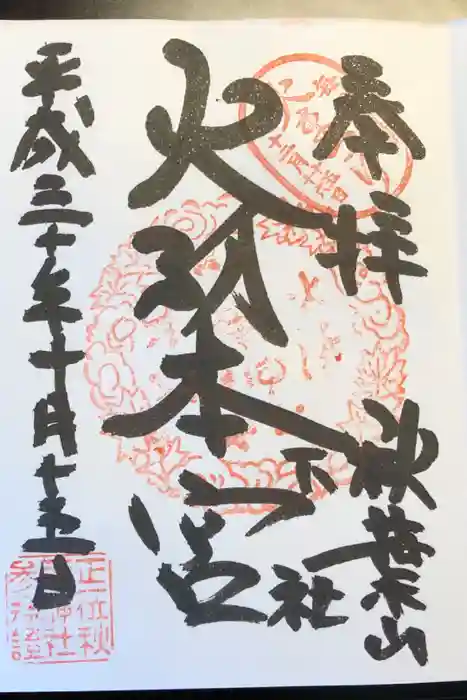 奉拝
秋葉山
火防本宮
下社
平成三十年十月十五日
正一位秋